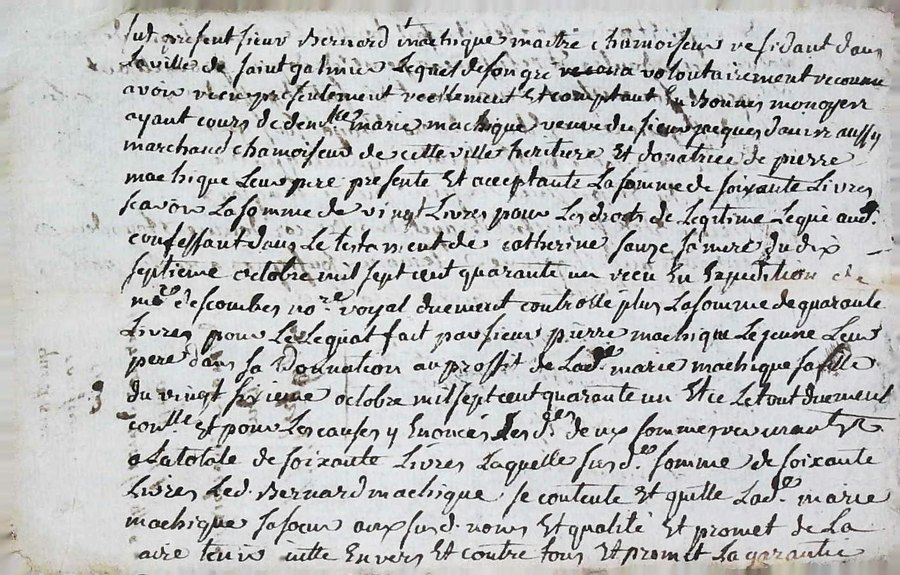 fut présent sieur Bernard machique maitre chamoiseur residant dans
La ville de saint galmier Lequel de son gre volontairement reconnu
avoir receu presentement reellement Et comptant En Bonnes monoyes
ayant cours de den.lle marie machique veuve du sieur jacques aussy
marchand chamoiseur de cette ville heritiere Et donatrice de pierre
machique Leur pere presente Et acceptante La somme de soixante Livres
scavoir La somme de vingt Livres pour Les droits de Legitime Legué aud.
confessant dans Le testament de catherine sa mere du dix
septieme octobre mil sept cent quarante un receu En Expedition
me descombes no.re royal duement controllé plus La somme de quarante
Livres pour Le Legat fait par sieur pierre machique Le jeune Leur
pere dans sa Donnation au proffit de Lad. marie machique sa fille
du vingt sixieme octobre mil sept cent quarante un Et ce Le tout duement
con.lle Et pour Les causes y Enoncés Les d. deux sommes revenantes
a La totale de soixante Livres Laquelle susd. somme de soixante
Livres Led. Bernard machique se contente Et quitte Lad. marie
machique sa soeur aux susd. noms Et qualité Et promet de La
tenir quitte Envers Et contre tous Et promet La garantie